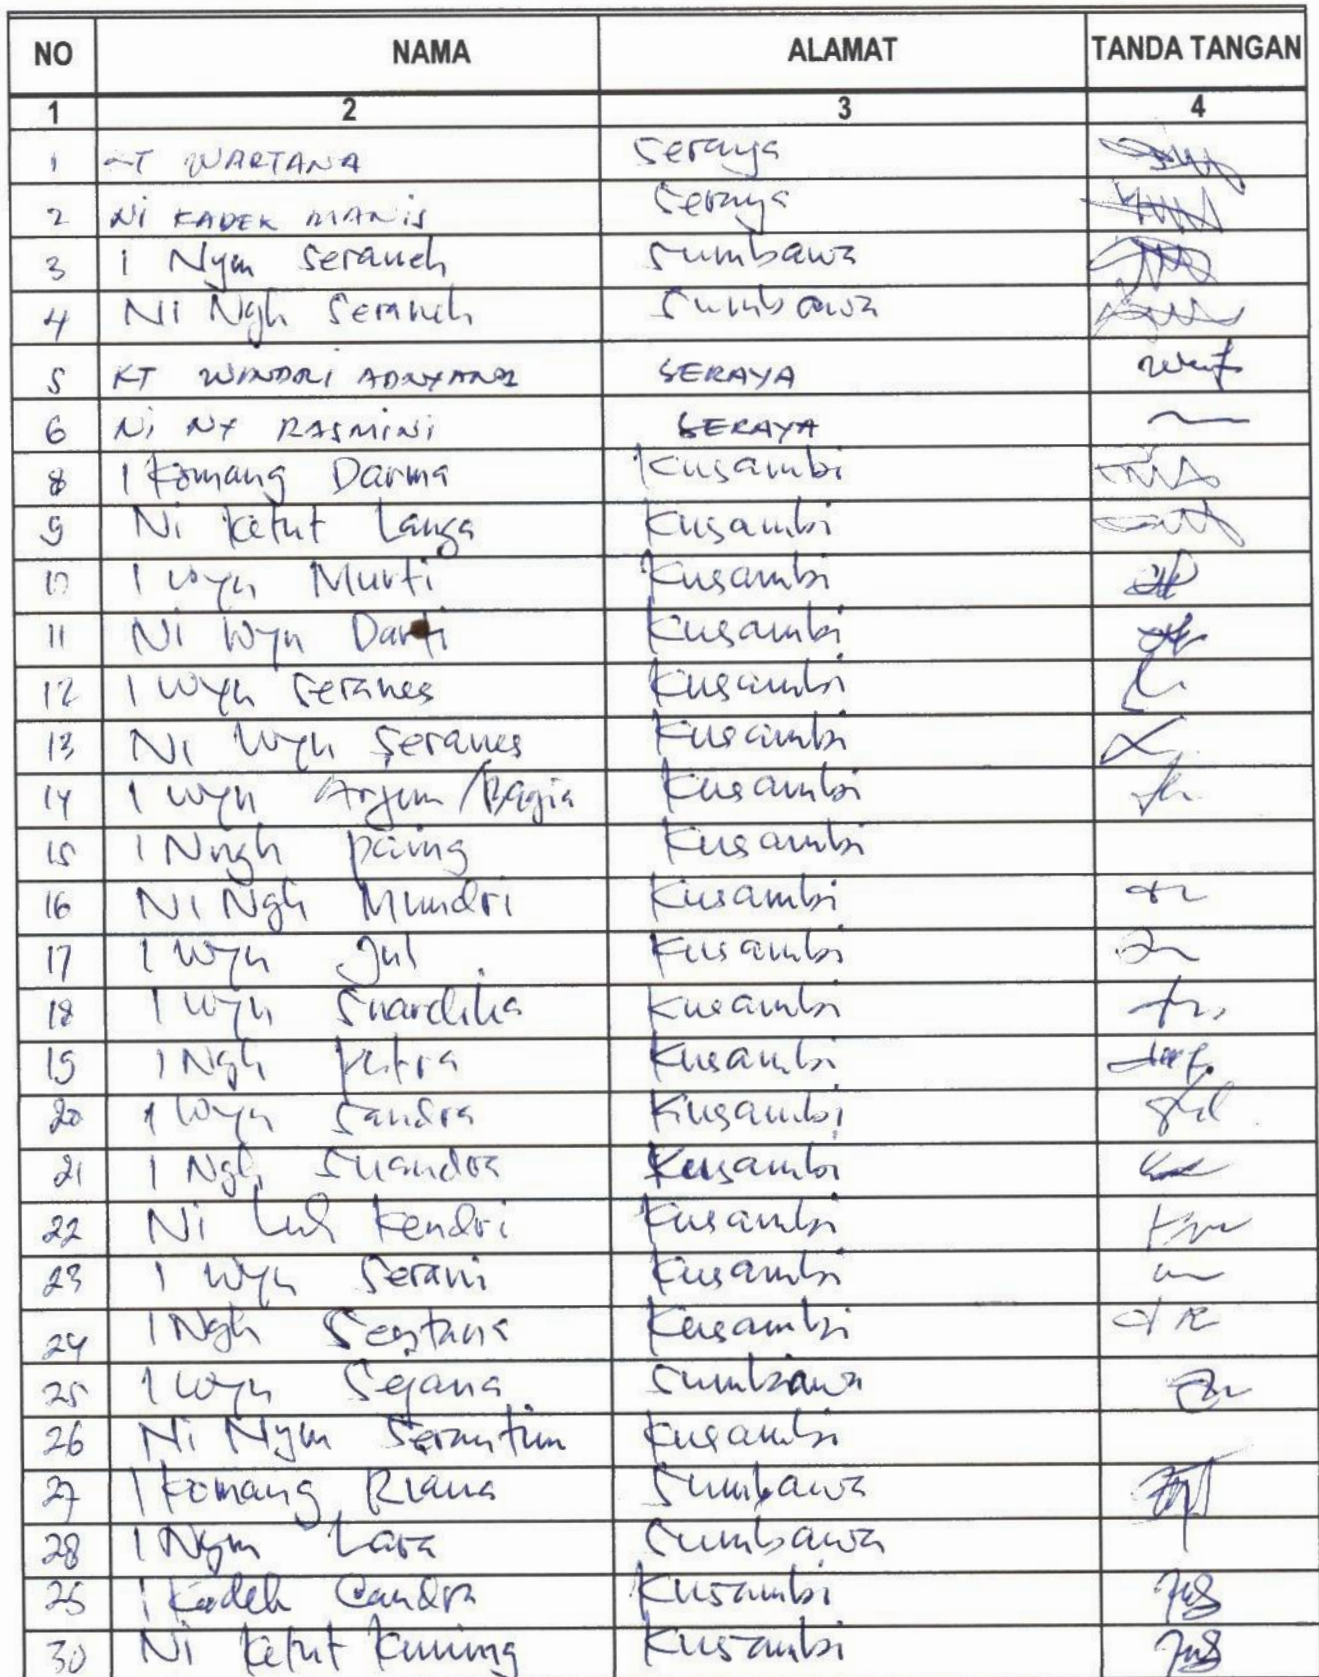 NO NAMA ALAMAT TANDA TANGAN
1 2 3 4
1 KT WARTANA Seraya
2 Ni KADEK MANiS Seraya
3 I Nym Seraneh Sumbawa
4 Ni Ngh Seraneh Sumbawa
5 KT WINDRI ADNYANA SERAYA
6 Ni NY RASMiNi SERAYA
8 I Komang Darma Kusambi
9 Ni Ketut Langa Kusambi
10 I Wyn Murti Kusambi
11 Ni Wyn Darti Kusambi
12 I Wyn Seranes Kusambi
13 Ni Wyn Seranes Kusambi
14 I Wyn Arjun/Bagia Kusambi
15 I Nngh paing Kusambi
16 Ni Ngh Mundri Kusambi
17 I Wyn Jul Kusambi
18 I Wyn Suardika Kusambi
19 I Ngh Putra Kusambi
20 I Wyn Sandra Kusambi
21 I Ngh Suandra Kusambi
22 Ni Luh Kendri Kusambi
23 I Wyn Serani Kusambi
24 I Ngh Kusambi
25 I Wyn Sejana Sumbawa
26 Ni Nym Serantun Kusambi
27 I Komang Riana Sumbawa
28 I Nym Lara Sumbawa
29 I Kadek Candra Kusambi
30 Ni Ketut Kuning Kusambi